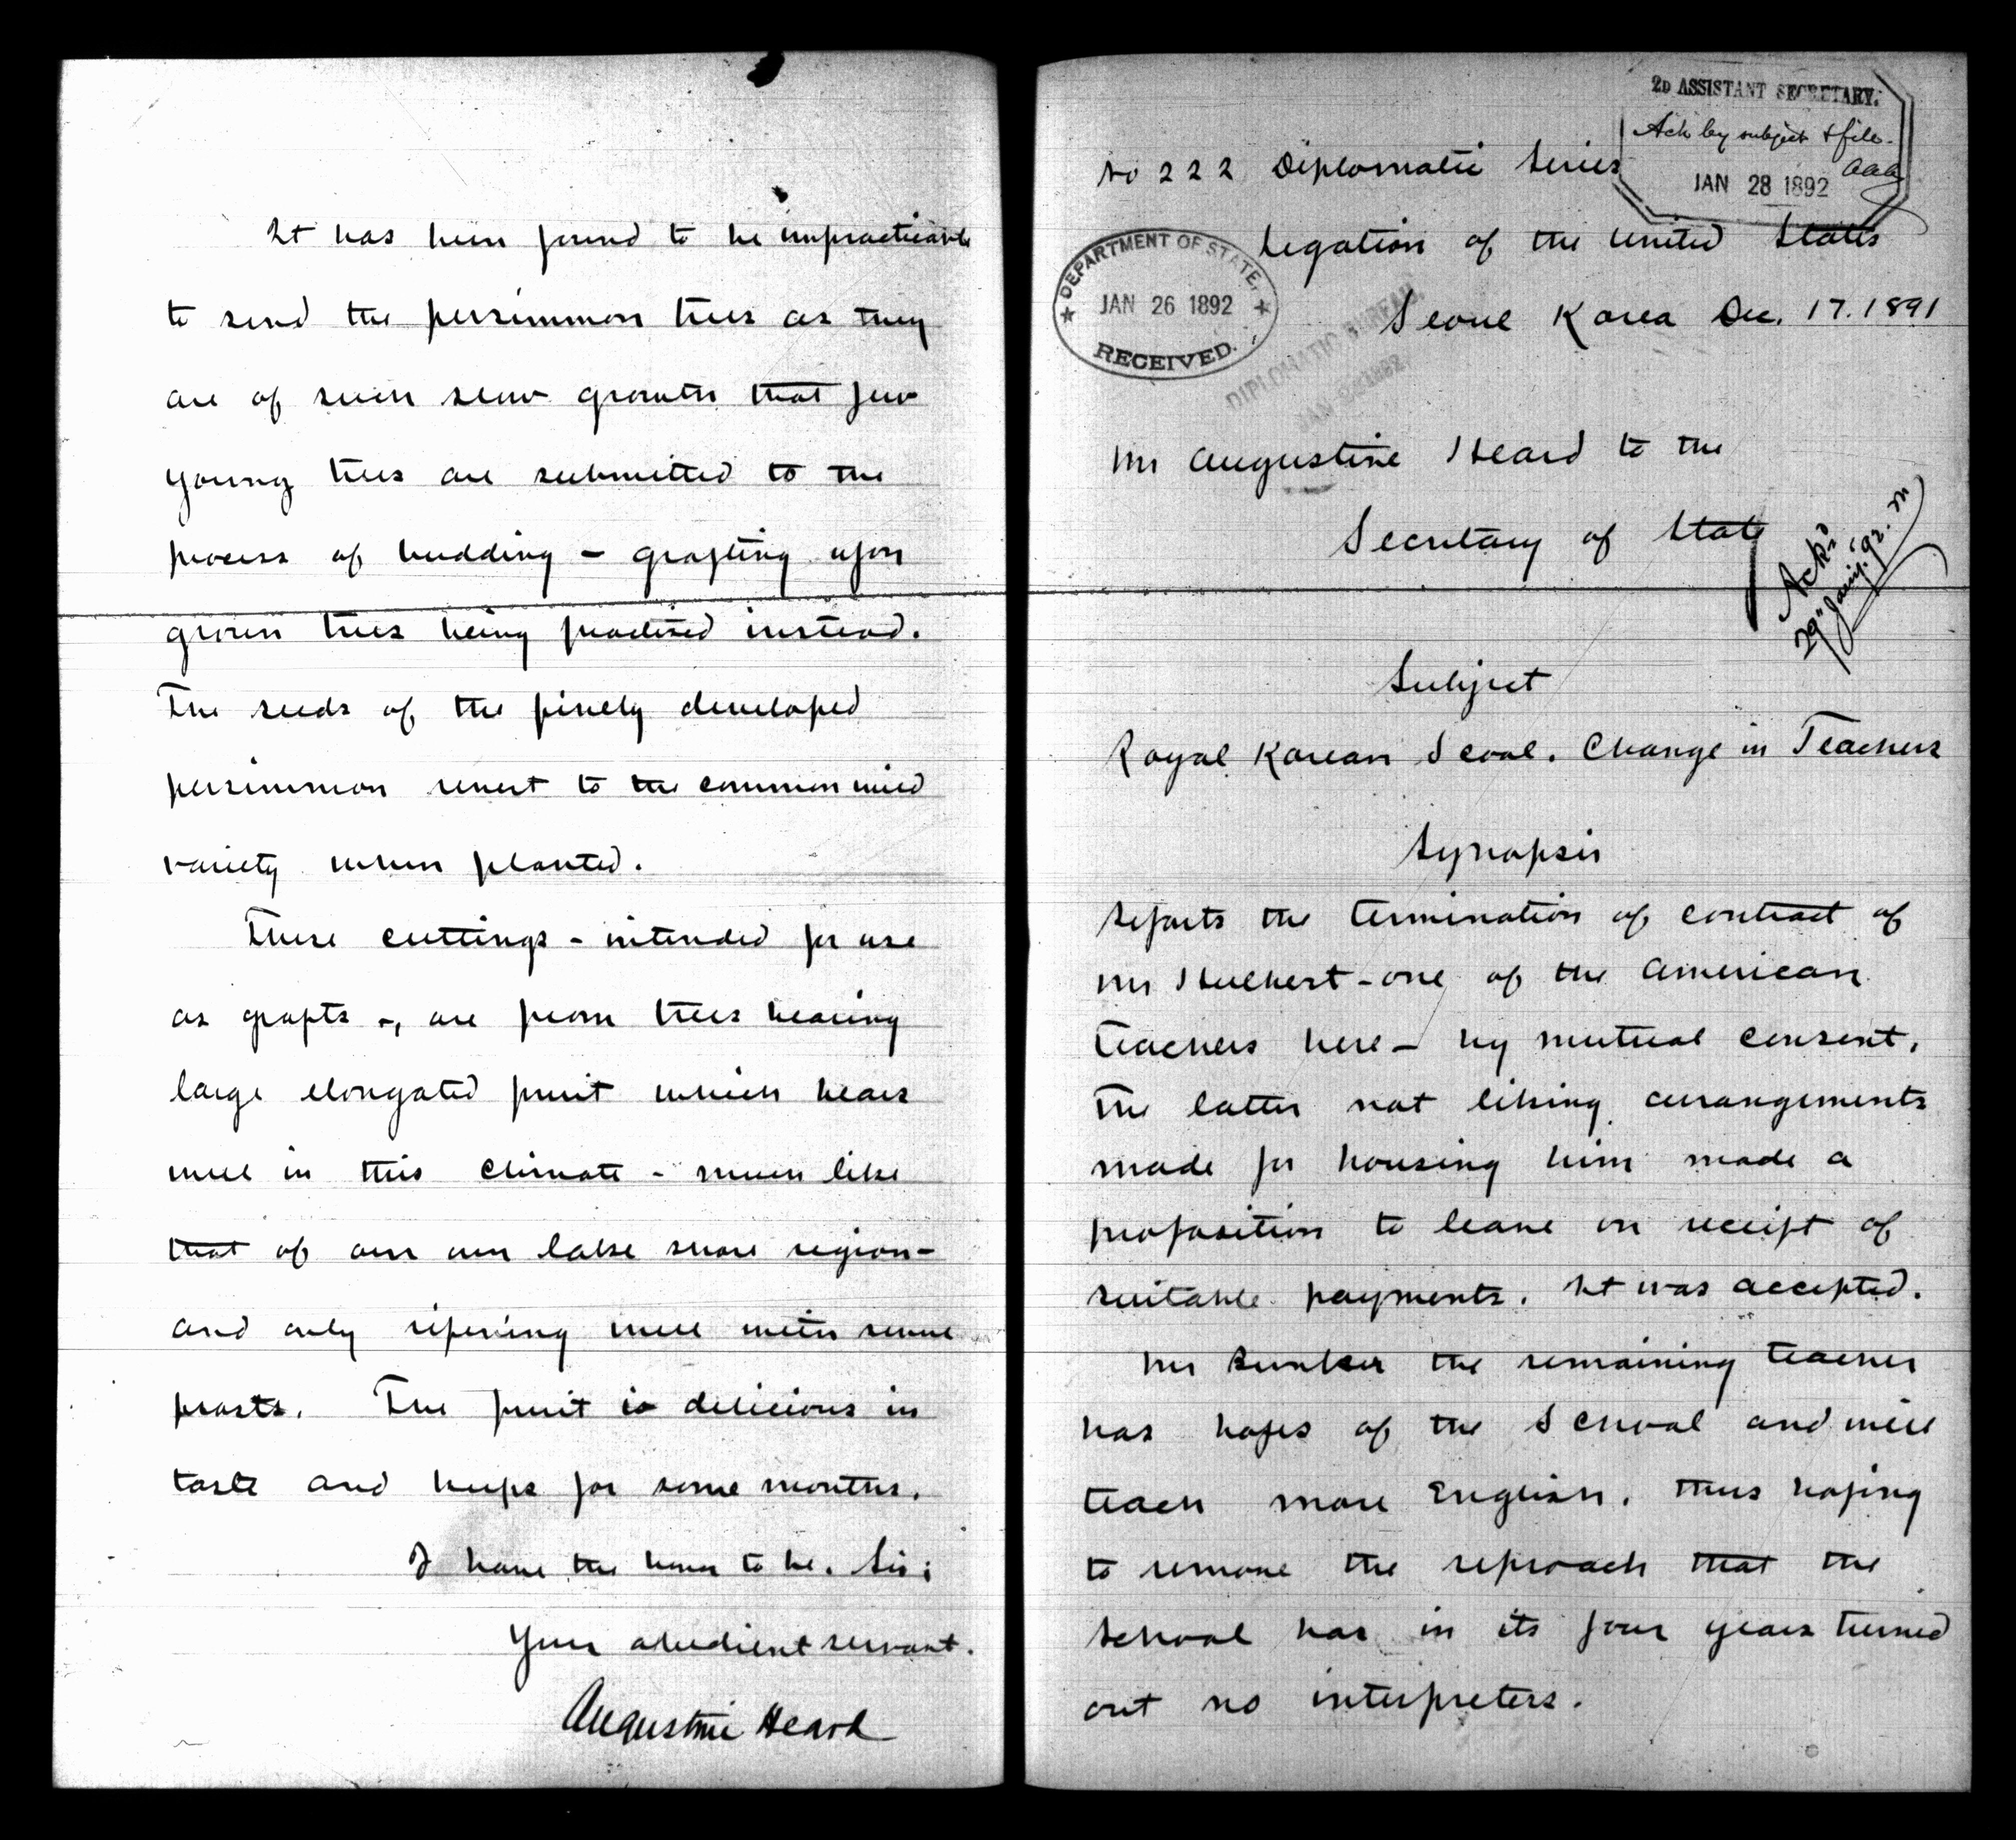 It has been found to be impracticable
to send the persimmon trees as they
are of such slow growth that few
young trees are submitted to the
process of budding - grafting upon
grown trees being practised instead.
The seeds of the finely developed
persimmon revert to the common wild
variety when planted.
These cuttings - intended for use
as grafts -, are from trees bearing
large elongated fruit which bears
well in this climate - much like
that of our own lake shore region -
and only ripening well with severe
frosts. The fruit is delicious in
taste and keeps for some months.
I have the honor to be. Sir:
Your obedient servant.
Augustine Heard
2D ASSISTANT SECRETARY.
Ack by subject & file.
aaa
JAN 28 1892
No 222 Diplomatic Series
Legation of the United States
DEPARTMENT OF STATE,
JAN 26 1892
RECEIVED.
DIPLOMATIC BUREAU.
Seoul Korea Dec. 17. 1891
Mr Augustine Heard to the
Secretary of State
Ackd
29" Jany. '92. M
Subject
Royal Korean Scool. Change in Teachers
Synopsis
Reports the termination of contract of
Mr Hulbert - one of the American
teachers here - by mutual consent.
The latter not liking arrangements
made for housing him made a
proposition to leave on receipt of
suitable payments. It was accepted.
Mr Bunker the remaining teacher
has hopes of the School and will
teach more English. thus hoping
to remove the reproach that the
school has in its four years turned
out no interpreters.